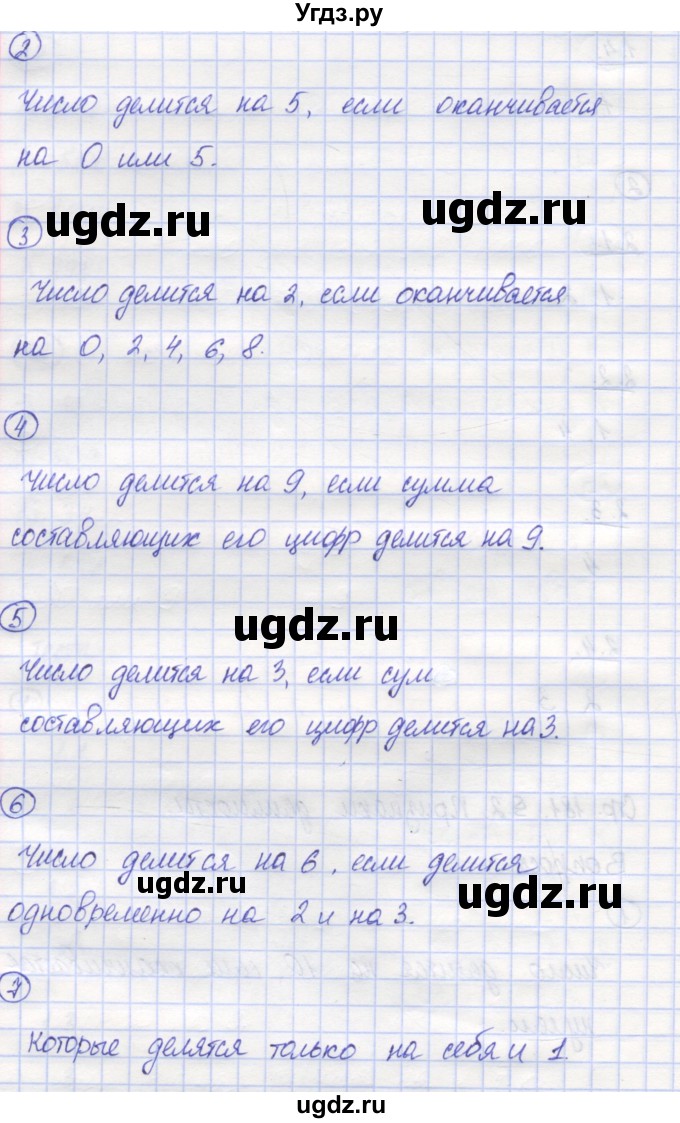 Угдз.ру
2
Число делится на 5, если оканчивается
на 0 или 5.
ugdz.ru
ugdz.ru
3
Число делится на 2, если оканчивается
на 0, 2, 4, 6, 8.
4
Число делится на 9, если сумма
составляющих его цифр делится на 9.
5
ugdz.ru
Число делится на 3, если сум
составляющих его цифр делится на 3.
6
Число делится на 6, если делится
ugdz.ru
ugdz.ru
одновременно на 2 и на 3.
7
Которые делятся только на себя и 1
ugdz.ru